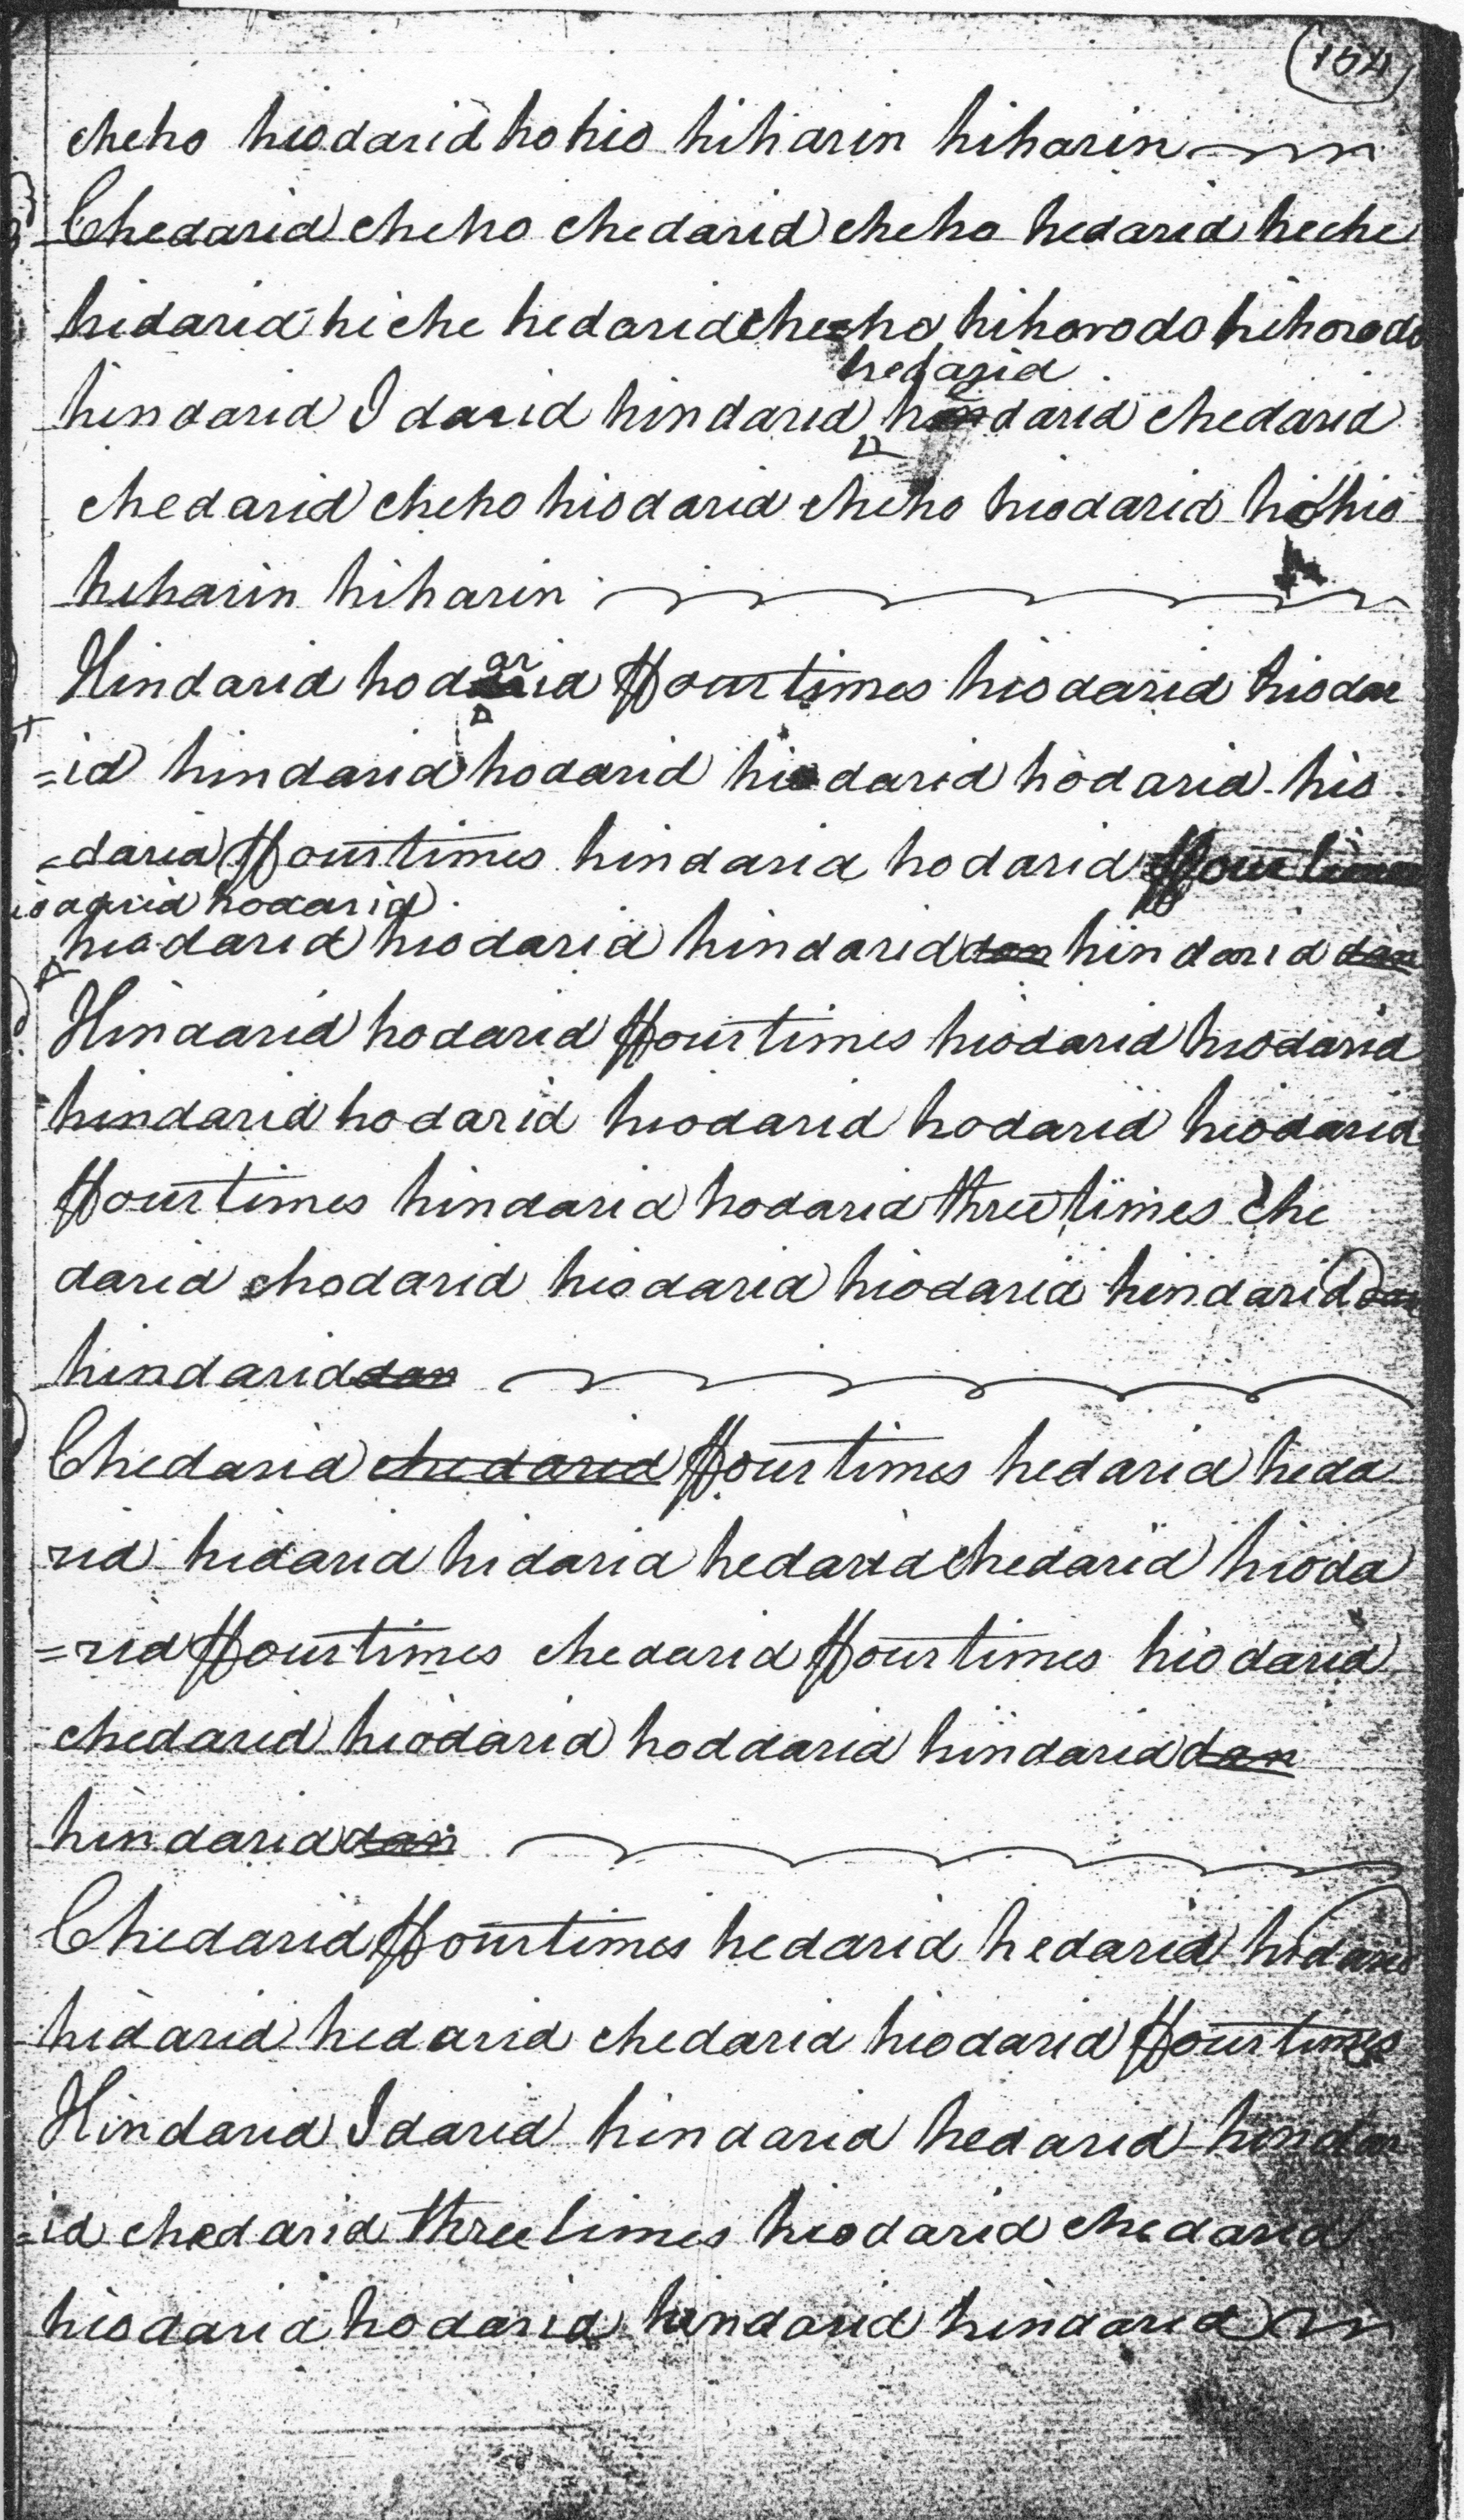 (154)
cheho hiodarid ho hio hiharin hiharin
Chedarid cheho chedarid cheho hedarid heche
hidarid hiche hedarid cheho hihorodo hihorodo
hedarid
hindarid I darid hindarid hindarid chedarid
chedarid cheho hiodarid cheho hiodarid ho hio
hiharin hiharin
Hindarid hodarid ffour times hiodarid hiodar
=id hindarid hodarid hiodarid hodarid hio
=darid ffour times hindarid hodarid ffour times
hiodarid hodarid
hiodarid hiodarid hindarid dan hindarid dan
Hindarid hodarid ffour times hiodarid hiodarid
hindarid hodarid hiodarid hodarid hiodarid
ffour times hindarid hodarid three times che
darid chodarid hiodarid hiodarid hindarid dan
hindarid dan
Chedarid chedarid ffour times hedarid heda
rid hidarid hidarid hedarid chedarid hioda
=rid ffour times chedarid ffour times hiodarid
chedarid hiodarid hoddarid hindarid dan
hindarid dan
Chedarid ffour times hedarid hedarid hidarid
hidarid hedarid chedarid hiodarid ffour times
Hindarid I darid hindarid hedarid hindar
=id chedarid three times hiodarid chedarid
hiodarid hodarid hindarid hindarid